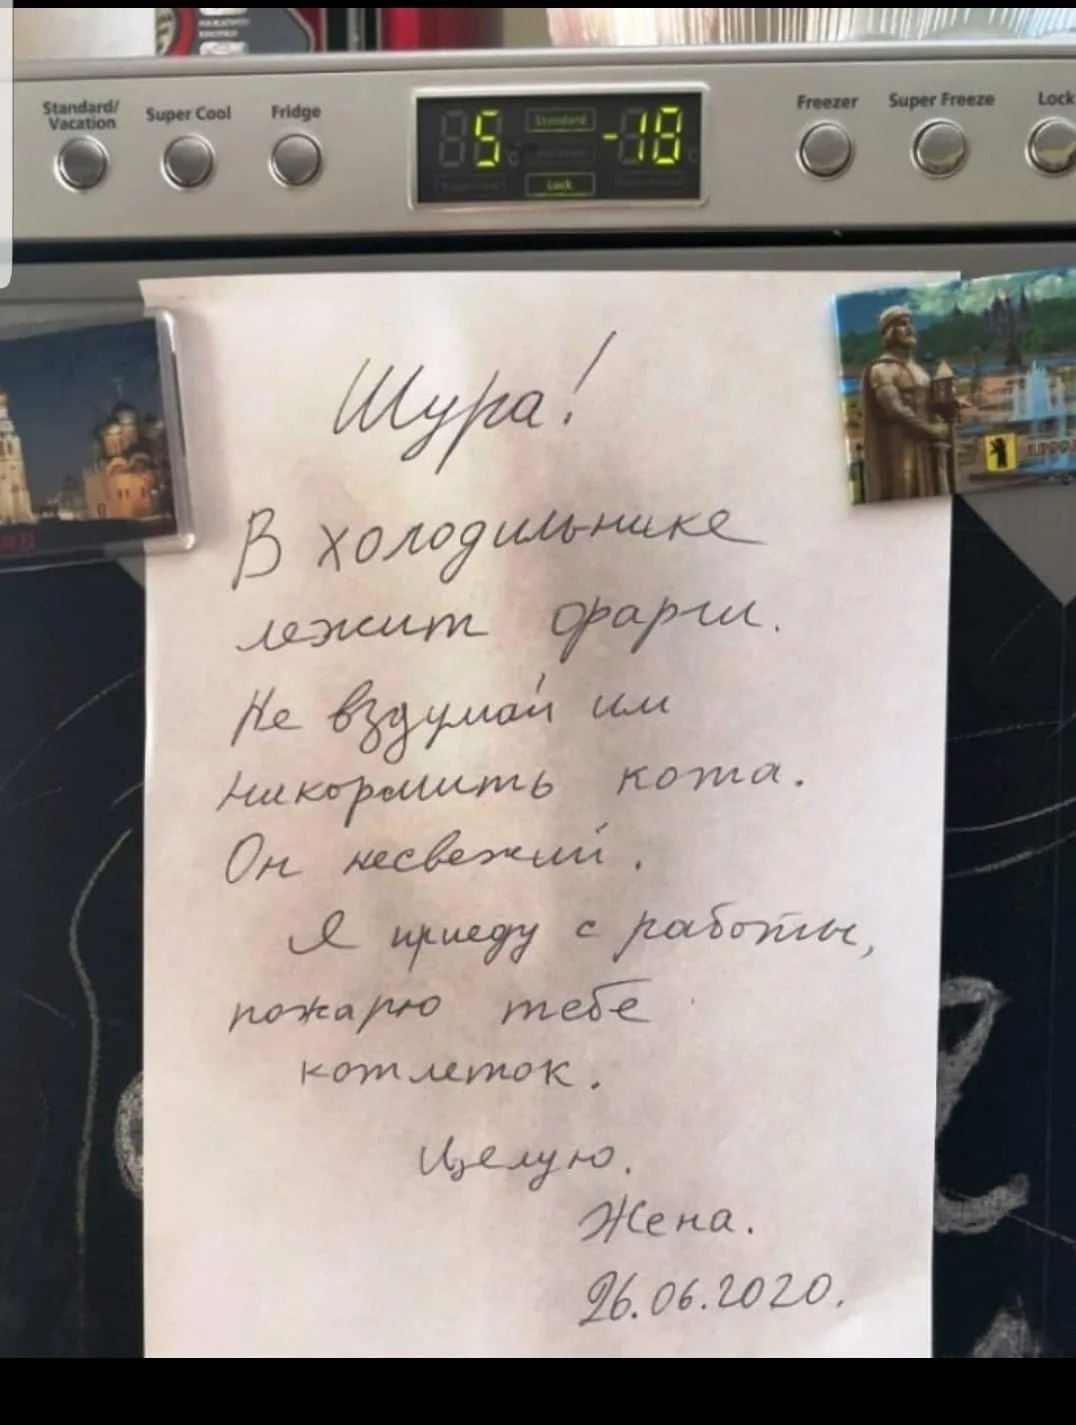 НАЖМИТЕ
КНОПКУ
Standard/
Vacation
Super Cool
Fridge
Freezer
Super Freeze
Lock
5 °C
Standard
-18 °C
Lock
Шура!
В холодильнике
лежит фарш.
Не вздумай им
накормить кота.
Он несвежий.
Я приеду с работы,
пожарю тебе
котлеток.
Целую.
Жена.
26.06.2020.